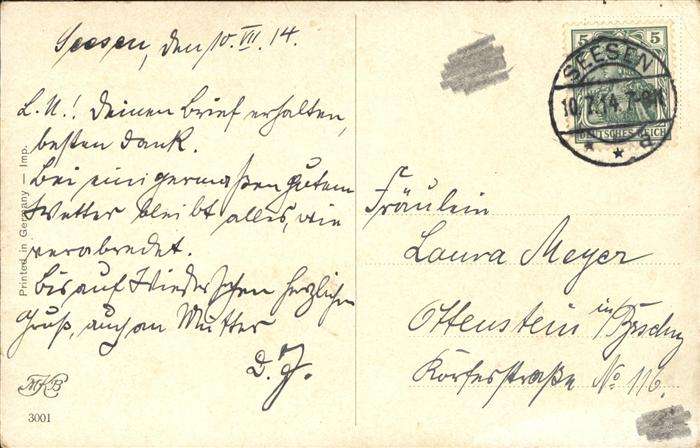 Seesen, den 10. VII. 14.
L. A.! Deinen Brief erhalten,
besten Dank.
Bei einigermaßen gutem
Wetter bleibt alles, wie
verabredet.
Bis auf Wiedersehen herzlichen
Gruß, auch an Mutter
D. J.
Printed in Germany — Imp.
MKB
3001
5 5
DEUTSCHES REICH
SEESEN
10.7.14. 7-8N
* * a
Fräulein
Laura Meyer
Ottenstein in/Brschwg
Körfesstraße No 116.